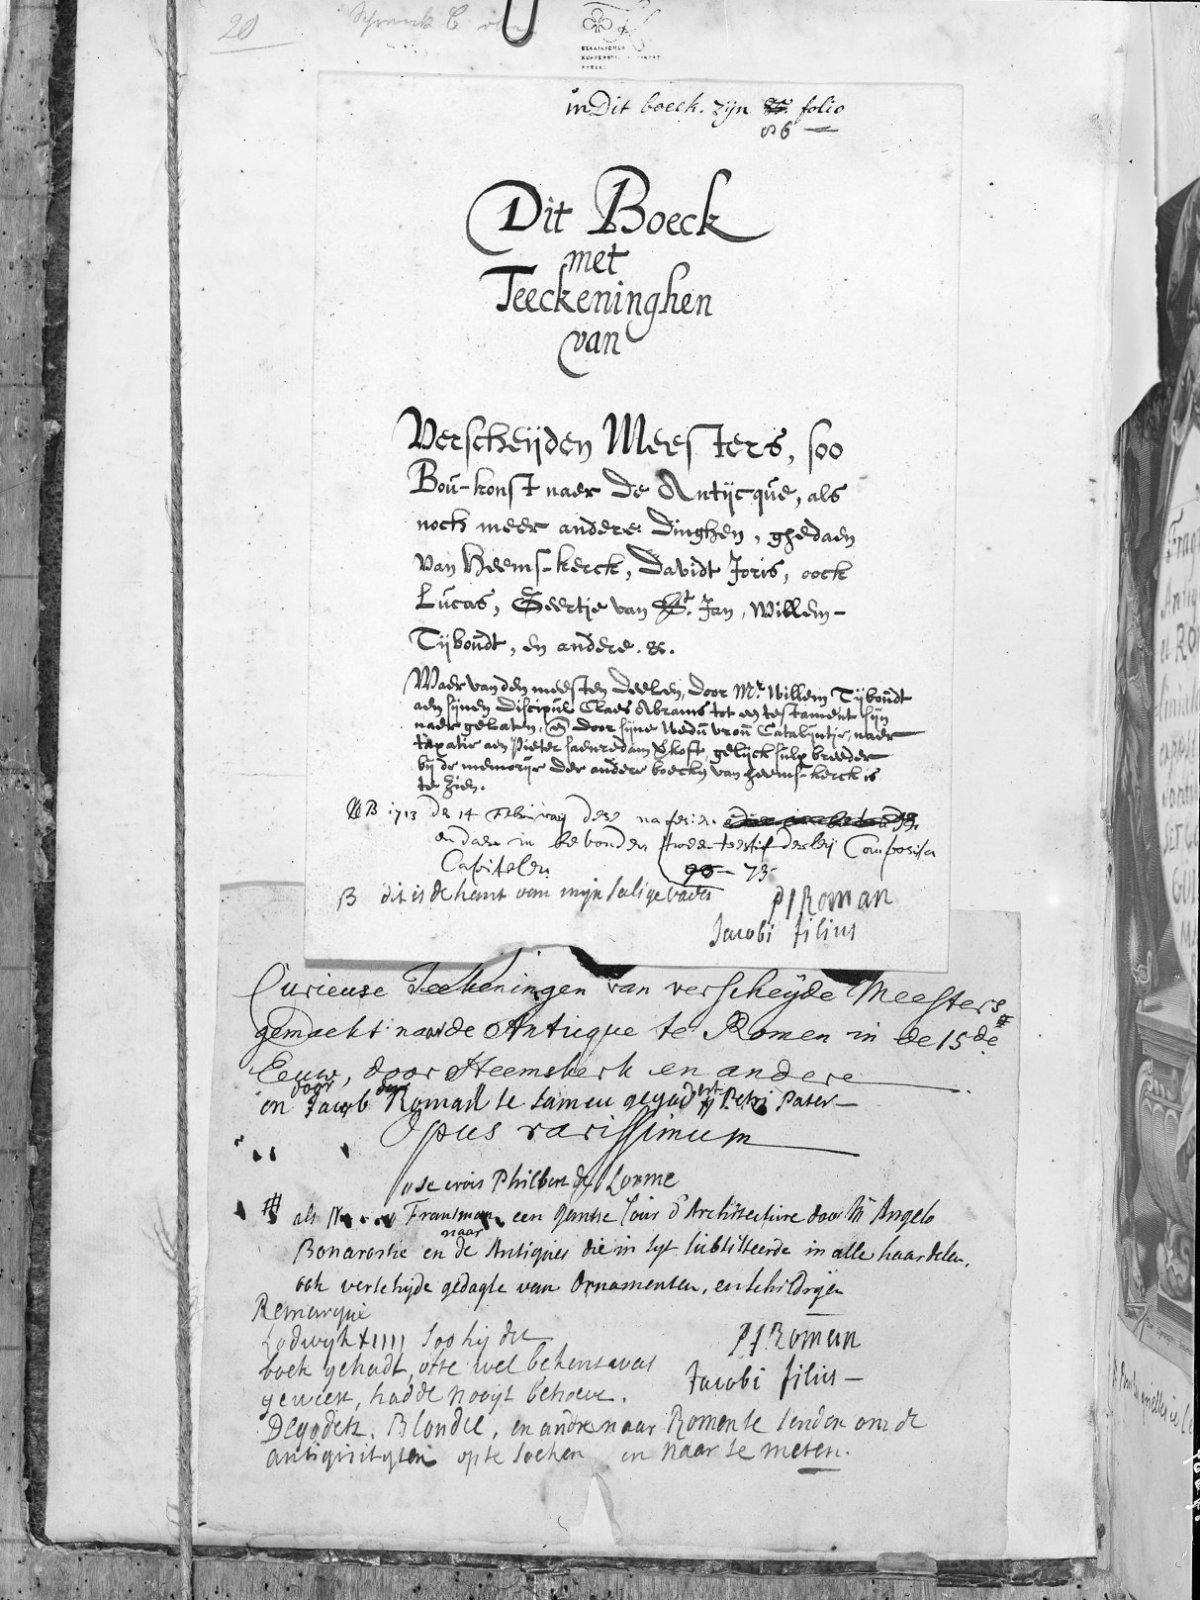 20
STAATLICHES
in Dit boeck. zijn folio
86
Dit Boeck
met
Teeckeninghen
van
Verscheijden Meesters, soo
Boú-konst naer De Antijcqúe, als
noch meer andere dinghen, ghedaen
van Heems-kerck, Davidt Joris, oock
Lúcas, Geertje van St. Jan, Willem-
Tijboúdt, en andere. &.
Waer van den meesten deelen, door Mr. Willem Tijboúdt
aen sijnen Discipúl Claes Abrams tot een testament sijn
naer gelaten, en door sijne Wedú vroú Catalijntje, naer
taxatie aen Pieter Saenredam vkoft, gelijck sulx breeder
bij de memorije der andere boecken van Heems-kerck is
te zien.
NB 1713 de 14 Februwarij dese
en daer in bevonden Composita
Capitelen 73
B dit is de hant van mijn salige vader
PJ Roman
Jacobi filius
Curieuse Teekeningen van verscheyde Meesters #
gemaekt naar de Antieque te Romen in de 15de
Eeuw, door Heemskerk en andere
en door Jacob Roman te samen gegadert Petri Pater
Opus rarissimum
Philbert de Lorme
# als Fransman een gantse Cours d'Architecture door M Angelo
naar
Bonarotie en de Antiques die in syt subsisteerde in alle haar delen,
ook verschyde gedagte van Ornamenten, en schildryen
Remarque
Lodwyk XIIII soo hij dit
boek gehadt, ofte wel bekent was
geweest, hadde nooyt behoeve
PJ Roman
Jacobi filius
Degodets, Blondel, en andre naar Romen te senden om de
antiquityten op te soeken en naar te meten.